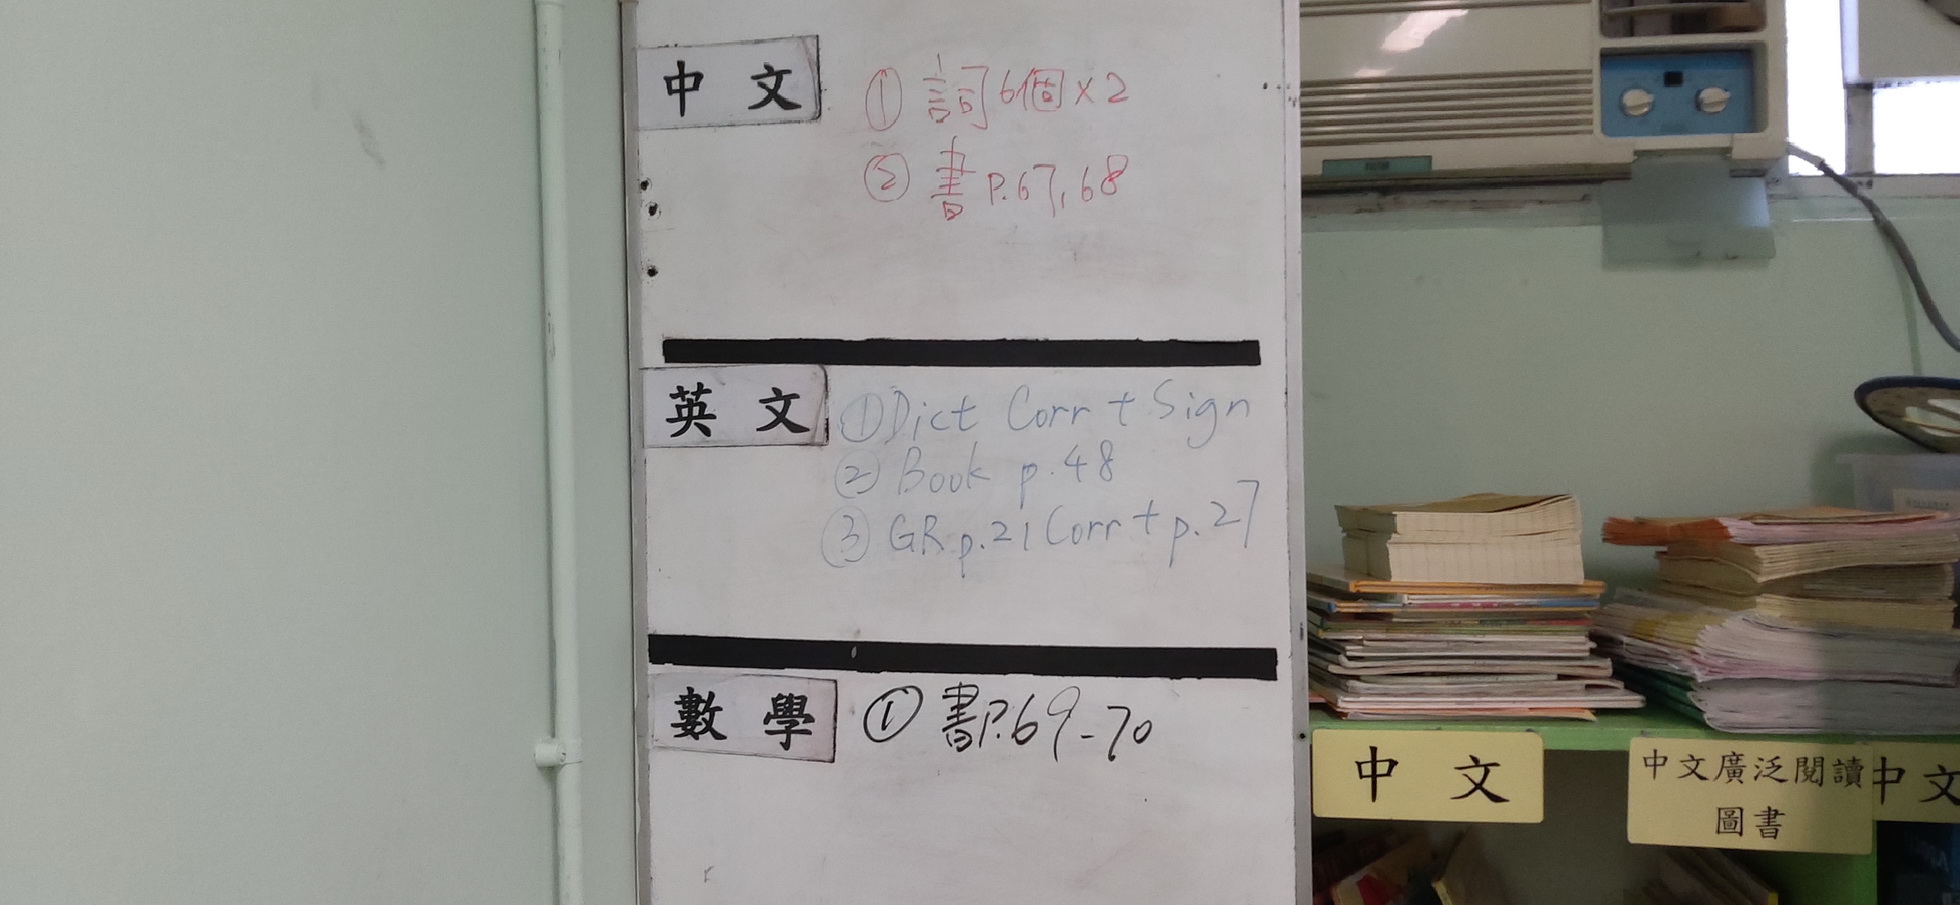 中文
① 詞6個×2
② 書P.67,68
英文
①Dict Corr + Sign
② Book p.48
③ GR p.21 Corr + p.27
數學
① 書P.69-70
中文
中文廣泛閱讀
圖書
中文